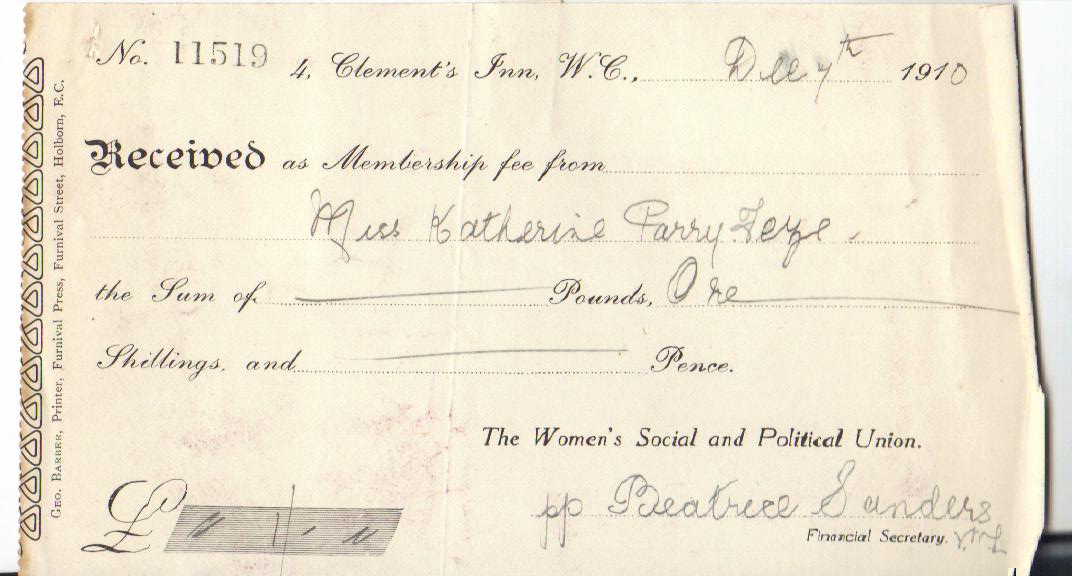 No. 11519 4, Clement's Inn, W.C., Dec 7th 1910
Received as Membership fee from
Miss Katherine Parry
the Sum of Pounds, One
Shillings, and Pence.
The Women's Social and Political Union.
£ " 1 . "
pp Beatrice Sanders
Financial Secretary.
GEO. BARBER, Printer, Furnival Press, Furnival Street, Holborn, E.C.